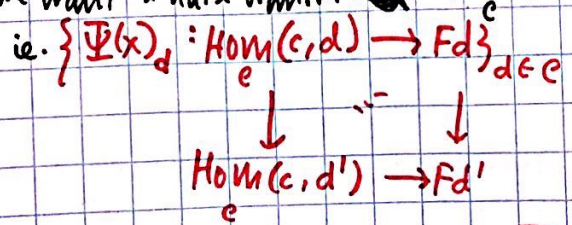 ie. { Ψ(x)_d : Hom_e(c,d) → Fd }_{d∈e}
↓ ↓
Hom_e(c,d') → Fd'